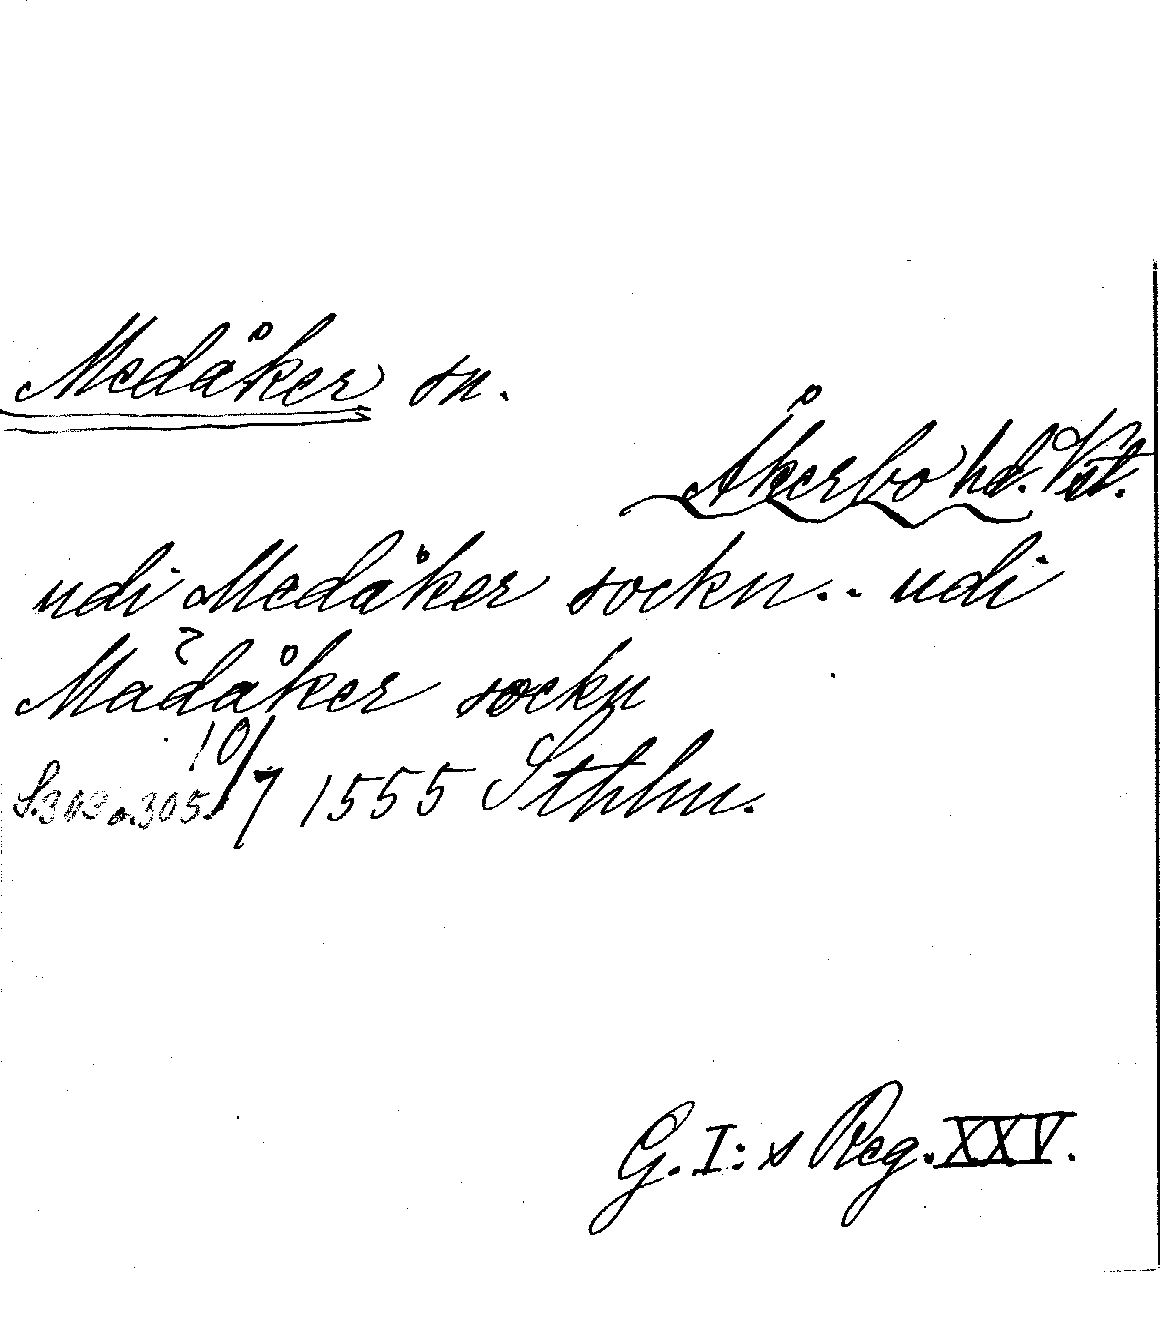 Medåker sn.
Åkerbo hd. Vstm.
udi Medåker sockn.. udi
Mädåker sockn
S. 303 o. 305. 10/7 1555 Sthlm.
G. I:s Reg. XXV.